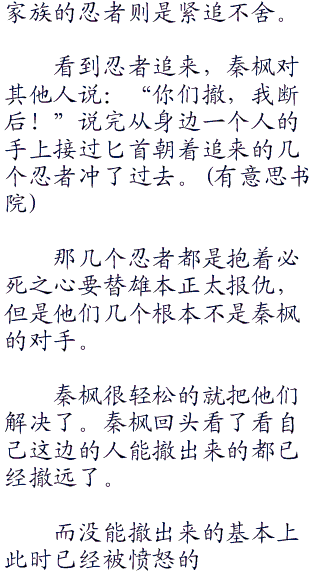 家族的忍者则是紧追不舍。
看到忍者追来，秦枫对
其他人说：“你们撤，我断
后！”说完从身边一个人的
手上接过匕首朝着追来的几
个忍者冲了过去。(有意思书
院)
那几个忍者都是抱着必
死之心要替雄本正太报仇，
但是他们几个根本不是秦枫
的对手。
秦枫很轻松的就把他们
解决了。秦枫回头看了看自
己这边的人能撤出来的都已
经撤远了。
而没能撤出来的基本上
此时已经被愤怒的